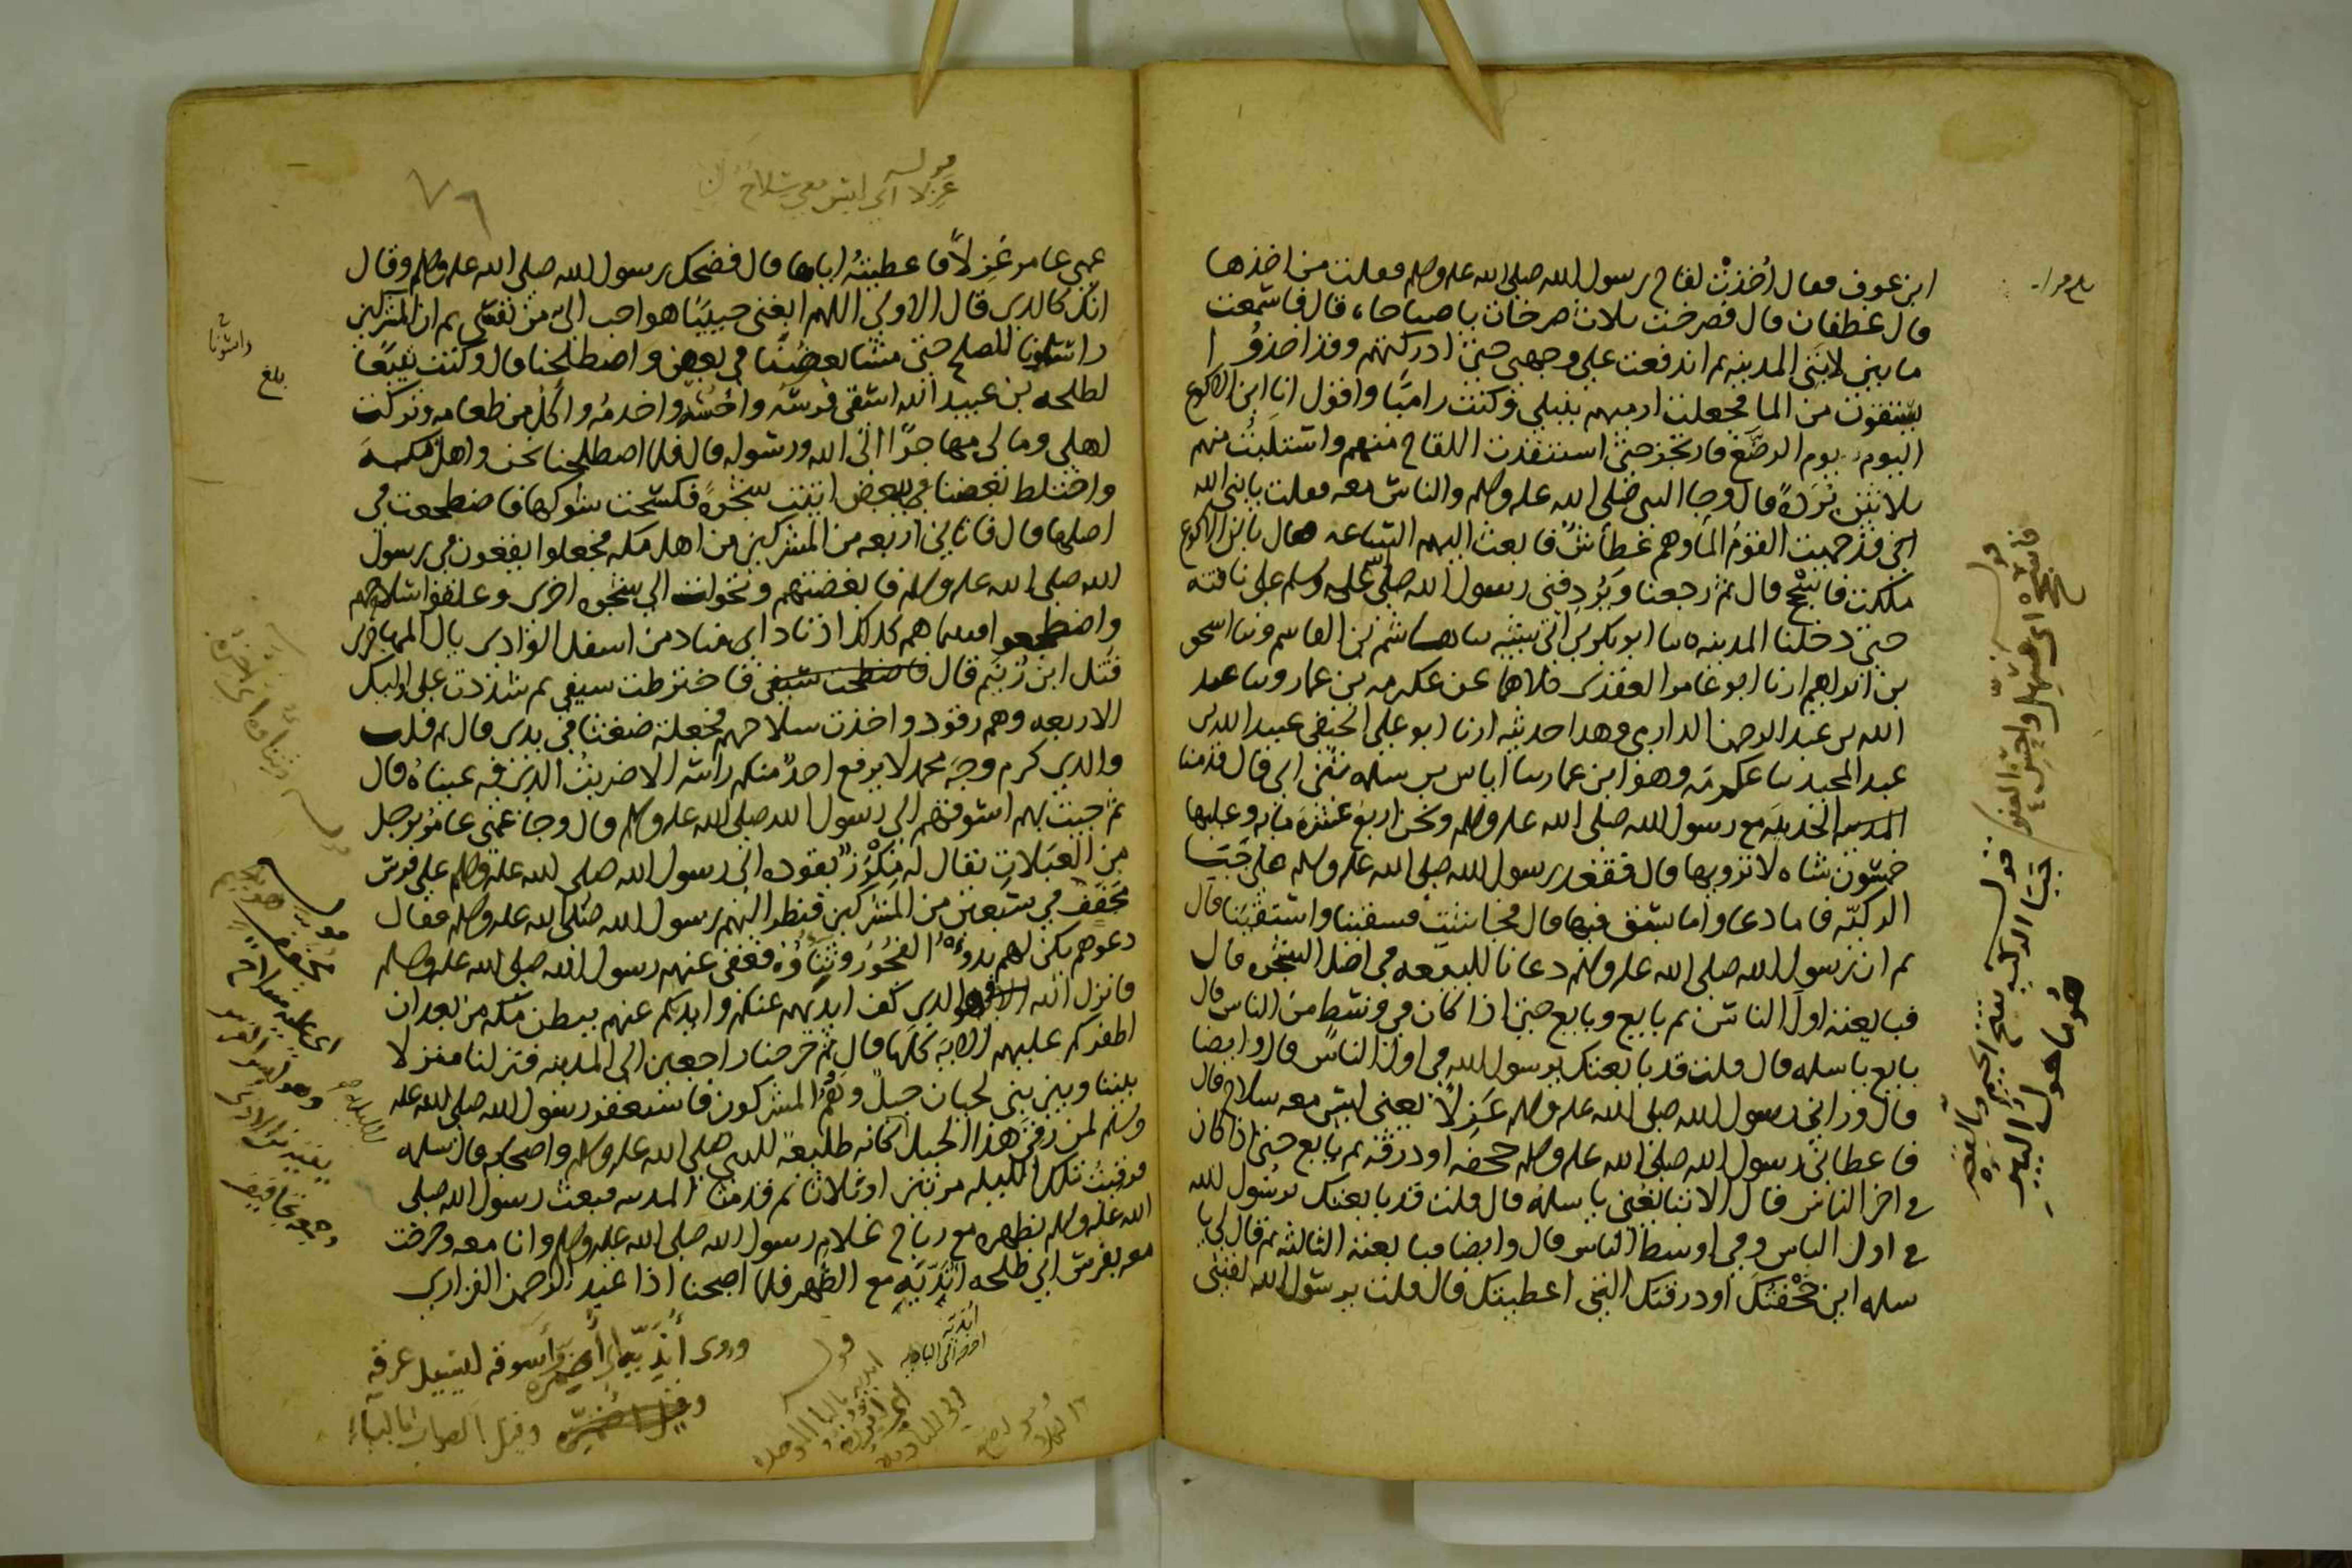 ابن عوف فقال أُخذَتْ لقاح رسول الله صلى الله عليه وسلم فقلت من اخذها
قال غطفان قال فصرخت ثلاث صرخات يا صباحاه قال فاسمعت
ما بين لابتي المدينه ثم اندفعت على وجهي حتى ادركتهم وقد اخذوا
يستقون من الما فجعلت ارميهم بنبلي وكنت راميًا واقول انا ابن الاكوع
اليوم يوم الرضع فارتجز حتى استنقذت اللقاح منهم واستلبت منهم
ثلاثين بُردةً قال وجا النبي صلى الله عليه وسلم والناس معه فقلت يا نبي الله
اني قد حميت القوم الما وهم عطاش فابعث اليهم الساعه فقال يا ابن الاكوع
ملكت فاسجح قال ثم رجعنا ويُردفني رسول الله صلى الله عليه وسلم على ناقته
حتى دخلنا المدينه ثنا ابو بكر بن ابي شيبه ثنا هاشم بن القاسم وثنا اسحق
بن ابراهيم انا ابو عامر العقدي كلاهما عن عكرمه بن عمار وثنا عبد
الله بن عبد الرحمن الدارمي وهذا حديثه انا ابو علي الحنفي عبيد الله بن
عبد المجيد ثنا عكرمه وهو ابن عمار ثنا اياس بن سلمه ثنى ابي قال قدمنا
الحديبيه مع رسول الله صلى الله عليه وسلم ونحن اربع عشرة مائه وعليها
خمسون شاه لا ترويها قال فقعد رسول الله صلى الله عليه وسلم على جَبَا
الركيّه فاما دعا واما بسق فيها قال فجاشت فسقينا واستقينا قال
ثم ان رسول الله صلى الله عليه وسلم دعانا للبيعه في اصل الشجره قال
فبايعته اول الناس ثم بايع وبايع حتى اذا كان في وسط من الناس قال
بايع يا سلمه قال قلت قد بايعتك يرسول الله في اول الناس قال وايضا
قال وراني رسول الله صلى الله عليه وسلم عَزِلاً يعني ليس معه سلاح قال
فاعطاني رسول الله صلى الله عليه وسلم حجفه او درقه ثم بايع حتى اذا كان
في اخر الناس قال الا تبايعني يا سلمه قال قلت قد بايعتك يرسول الله
في اول الناس وفي اوسط الناس قال وايضا فبايعته الثالثه ثم قال لي يا
سلمه اين حَجْفَتُك او درقتك التي اعطيتك قال قلت يرسول الله لقيني
قوله
فاسجح اي فسهل واحسن العفو
قوله جَبَا الركيه بفتح الجيم والقصر
هو ما حول البير
قوله
عزلا اي ليس معي سلاح
٧٦
عمي عامر عَزِلاً فاعطيته اياها قال فضحك رسول الله صلى الله عليه وسلم وقال
انك كالذي قال الاول اللهم ابغني حبيبًا هو احب الي من نفسي ثم ان المشركين
راسلونا الصلح حتى مشا بعضنا في بعض واصطلحنا قال وكنت تبيعًا
لطلحه بن عبيد الله اسقي فرسه واحُسّه واخدمُه واكل من طعامه وتركت
اهلي ومالي مهاجرًا الى الله ورسوله قال فلما اصطلحنا نحن واهل مكه
واختلط بعضنا في بعض اتيت شجرةً فكسحت شوكها فاضطجعت في
اصلها قال فاتاني اربعه من المشركين من اهل مكه فجعلوا يقعون في رسول
الله صلى الله عليه وسلم فابغضتهم وتحولت الى شجره اخرى وعلقوا سلاحهم
واضطجعوا فبينما هم كذلك اذ نادى مناد من اسفل الوادي يال المهاجرين
قُتل ابن زُنيم قال فاخترطت سيفي ثم شددت على اوليك
الاربعه وهم رقود واخذت سلاحهم فجعلته ضغثا في يدي قال ثم قلت
والذي كرم وجه محمد لا يرفع احد منكم راسه الا ضربتُ الذي فيه عيناه قال
ثم جيت بهم اسوقهم الى رسول الله صلى الله عليه وسلم قال وجا عمي عامر برجل
من العَبَلات يقال له مِكْرَز يقوده الى رسول الله صلى الله عليه وسلم على فرس
مجفف في سبعين من المشركين فنظر اليهم رسول الله صلى الله عليه وسلم فقال
دعوهم يكن لهم بدوُ الفجُور وثِناؤُه فعفى عنهم رسول الله صلى الله عليه وسلم
فانزل الله وهو الذي كف ايديهم عنكم وايديكم عنهم ببطن مكه من بعد ان
اظفركم عليهم الايه كلها قال ثم خرجنا راجعين الى المدينه فنزلنا منزلا
بيننا وبين بني لحيان جبل وهُمُ المشركون فاستغفر رسول الله صلى الله عليه
وسلم لمن رَقى هذا الجبل كانه طليعه للنبي صلى الله عليه وسلم واصحابه قال سلمه
فرقيت تلك الليله مرتين او ثلاثا ثم قدمنا المدينه فبعث رسول الله صلى
الله عليه وسلم بظهره مع رباح غلام رسول الله صلى الله عليه وسلم وانا معه وخرجت
معه بفرس ابي طلحه اُنَدّيه مع الظهر فلما اصبحنا اذا عبد الرحمن الفزاري
بلغ
قوله
مجفف
وروى أُنَدّيه
وقيل الصواب بالباء